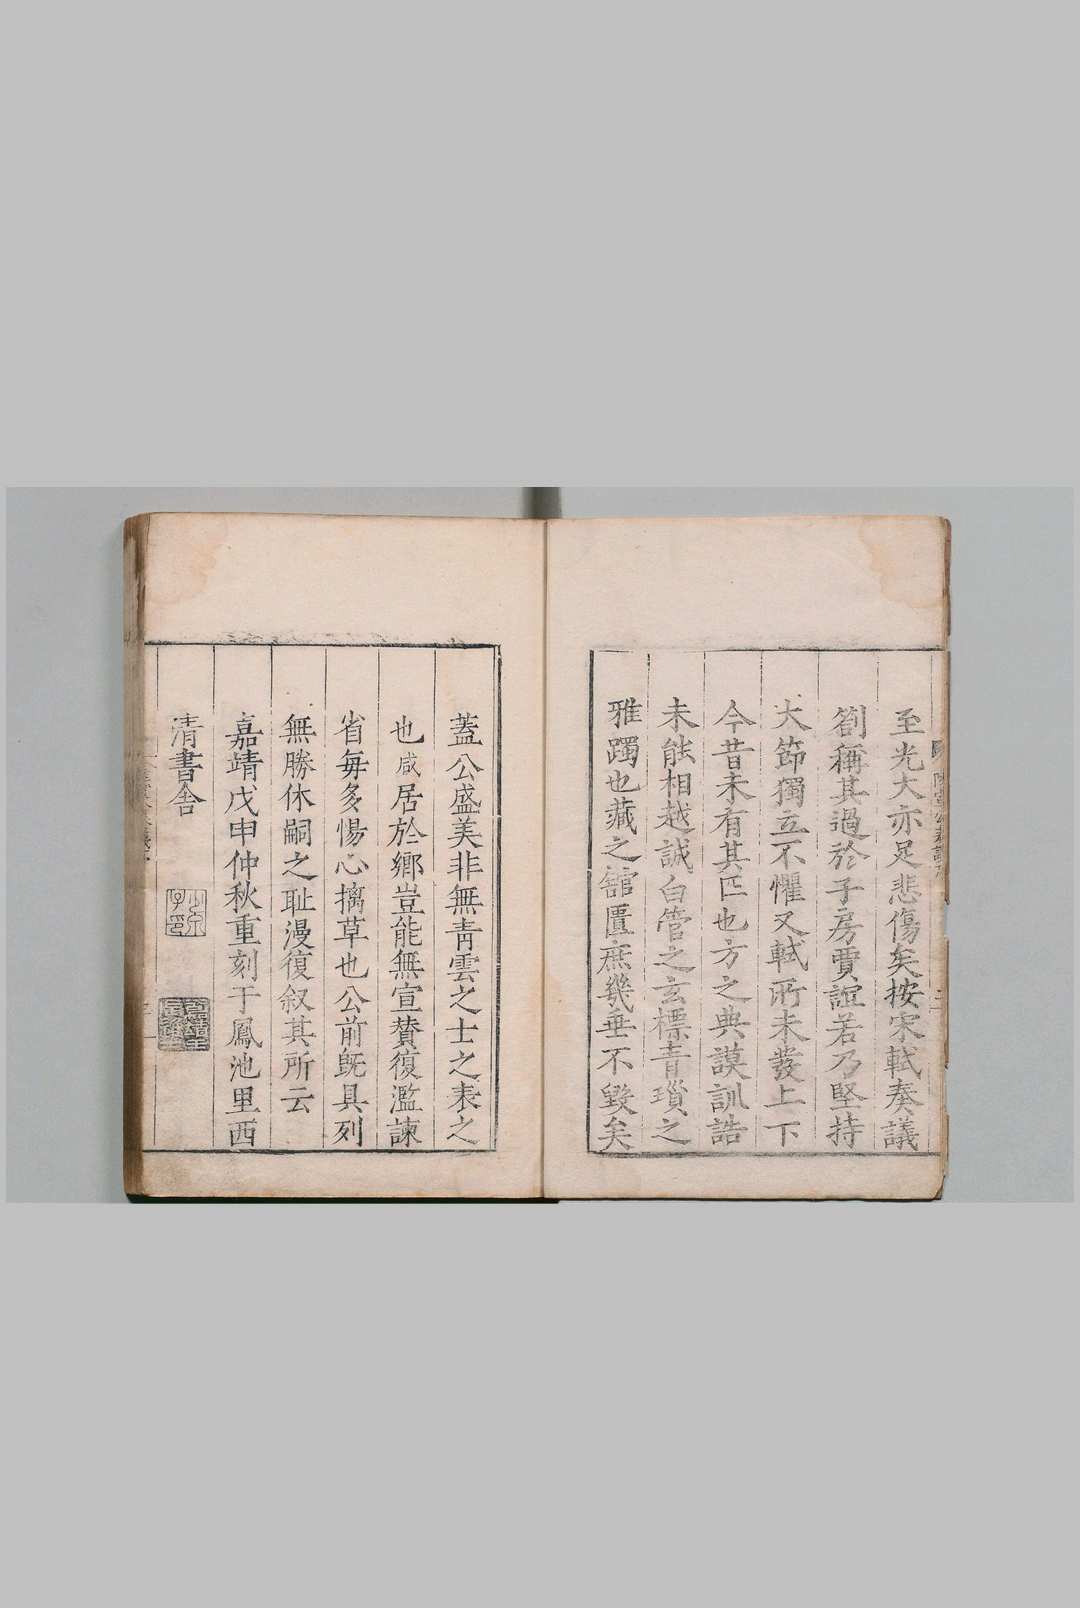 至光大亦足悲傷矣按宋軾奏議
劄稱其過於子房賈誼若乃堅持
大節獨立不懼又軾所未發上下
今昔未有其匹也方之典謨訓誥
未能相越誠白管之玄標青瑣之
雅躅也藏之舘匱庶幾垂不毀矣
蓋公盛美非無青雲之士之表之
也咸居於鄉豈能無宣賛復濫諫
省每多惕心擒草也公前旣具列
無勝休嗣之耻漫復叙其所云
嘉靖戊申仲秋重刻于鳳池里西
清書舎